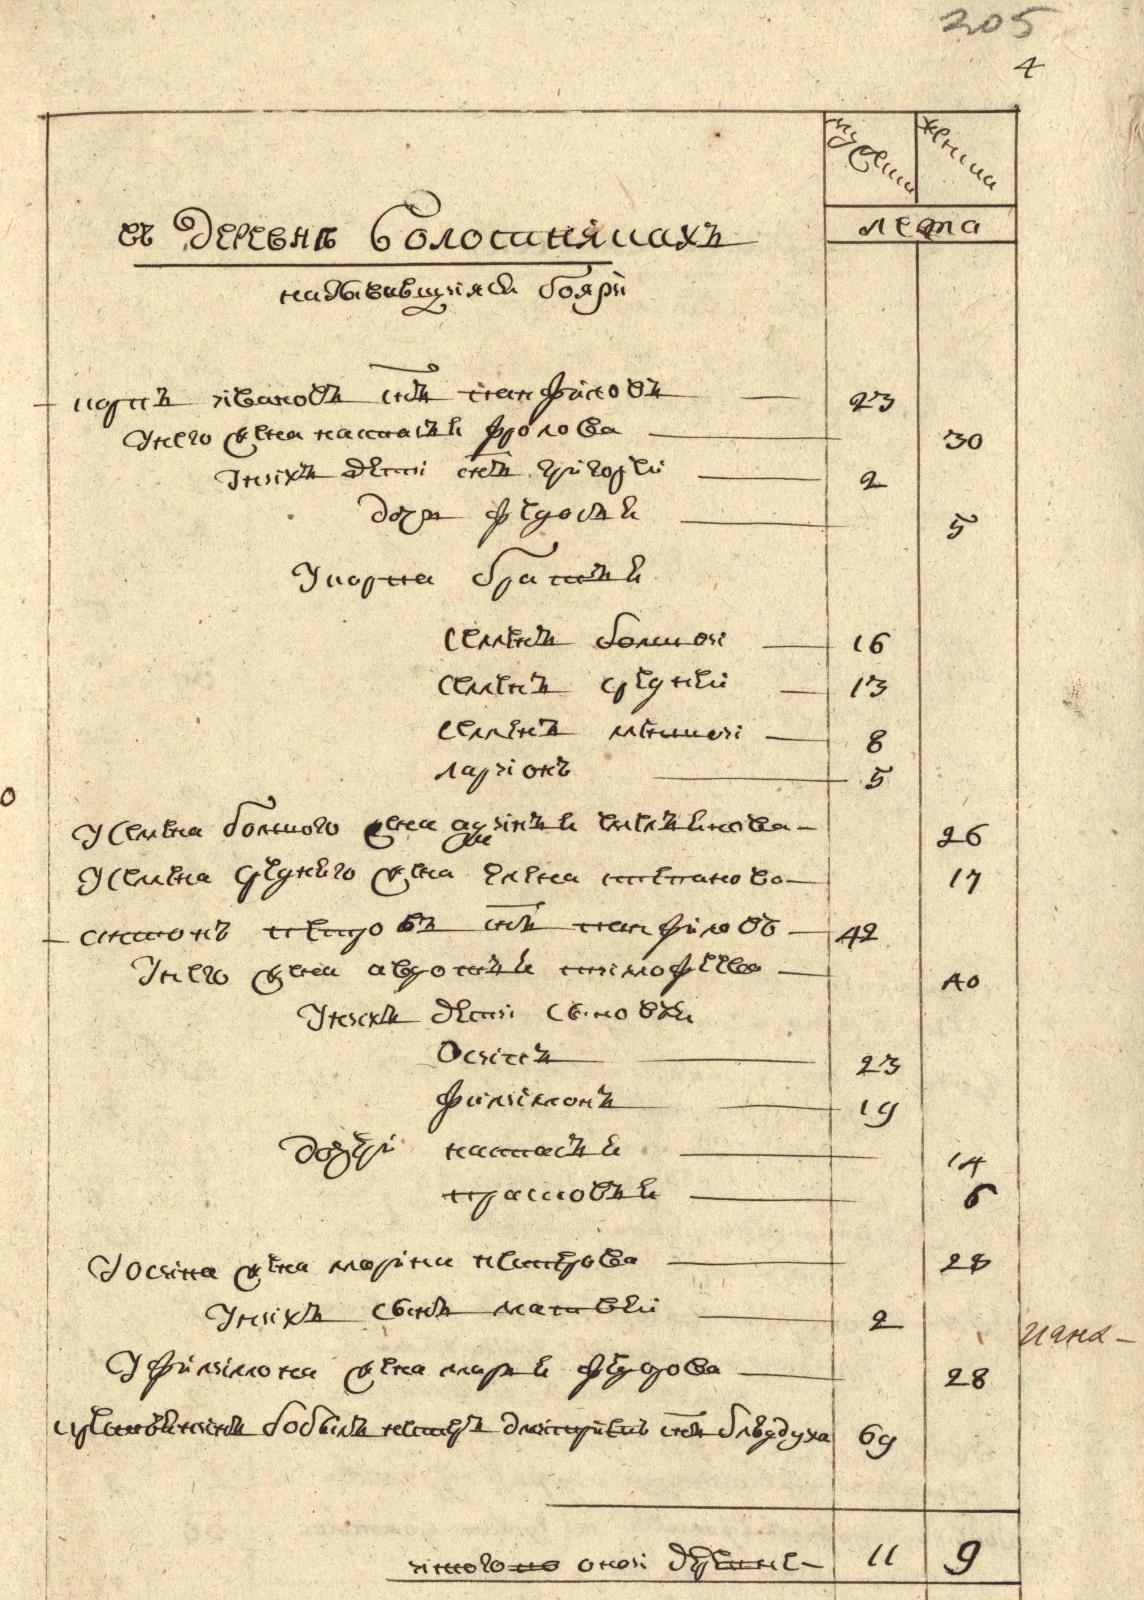 205
4
мужеска женска
лета
въ Деревне болотняцахъ
называвщияся бояри
карпъ ивановъ снъ панфиловъ 23
Унего жена настасья фролова 30
Унихъ дети снъ григорей 2
дочь федосья 5
Укарпа братья
семенъ болшои 16
семенъ среднеи 13
семенъ меншои 8
ларионъ 5
Усемена болшого жена авдотья 26
Усемена среднего жена елена степанова 17
антонъ петровъ снъ панфиловъ 42
Унего жена авдотья тимофеева 40
Унихъ дети сыновья
Осипъ 23
филимонъ 19
дочери настасья 14
прасковья 6
Уосипа жена марина нестерова 28
Унихъ сынъ матвей 2
Уфилимона жена марья федорова 28
бобыль нестеръ дмитриевъ снъ 69
итого по онои деревне 11 9